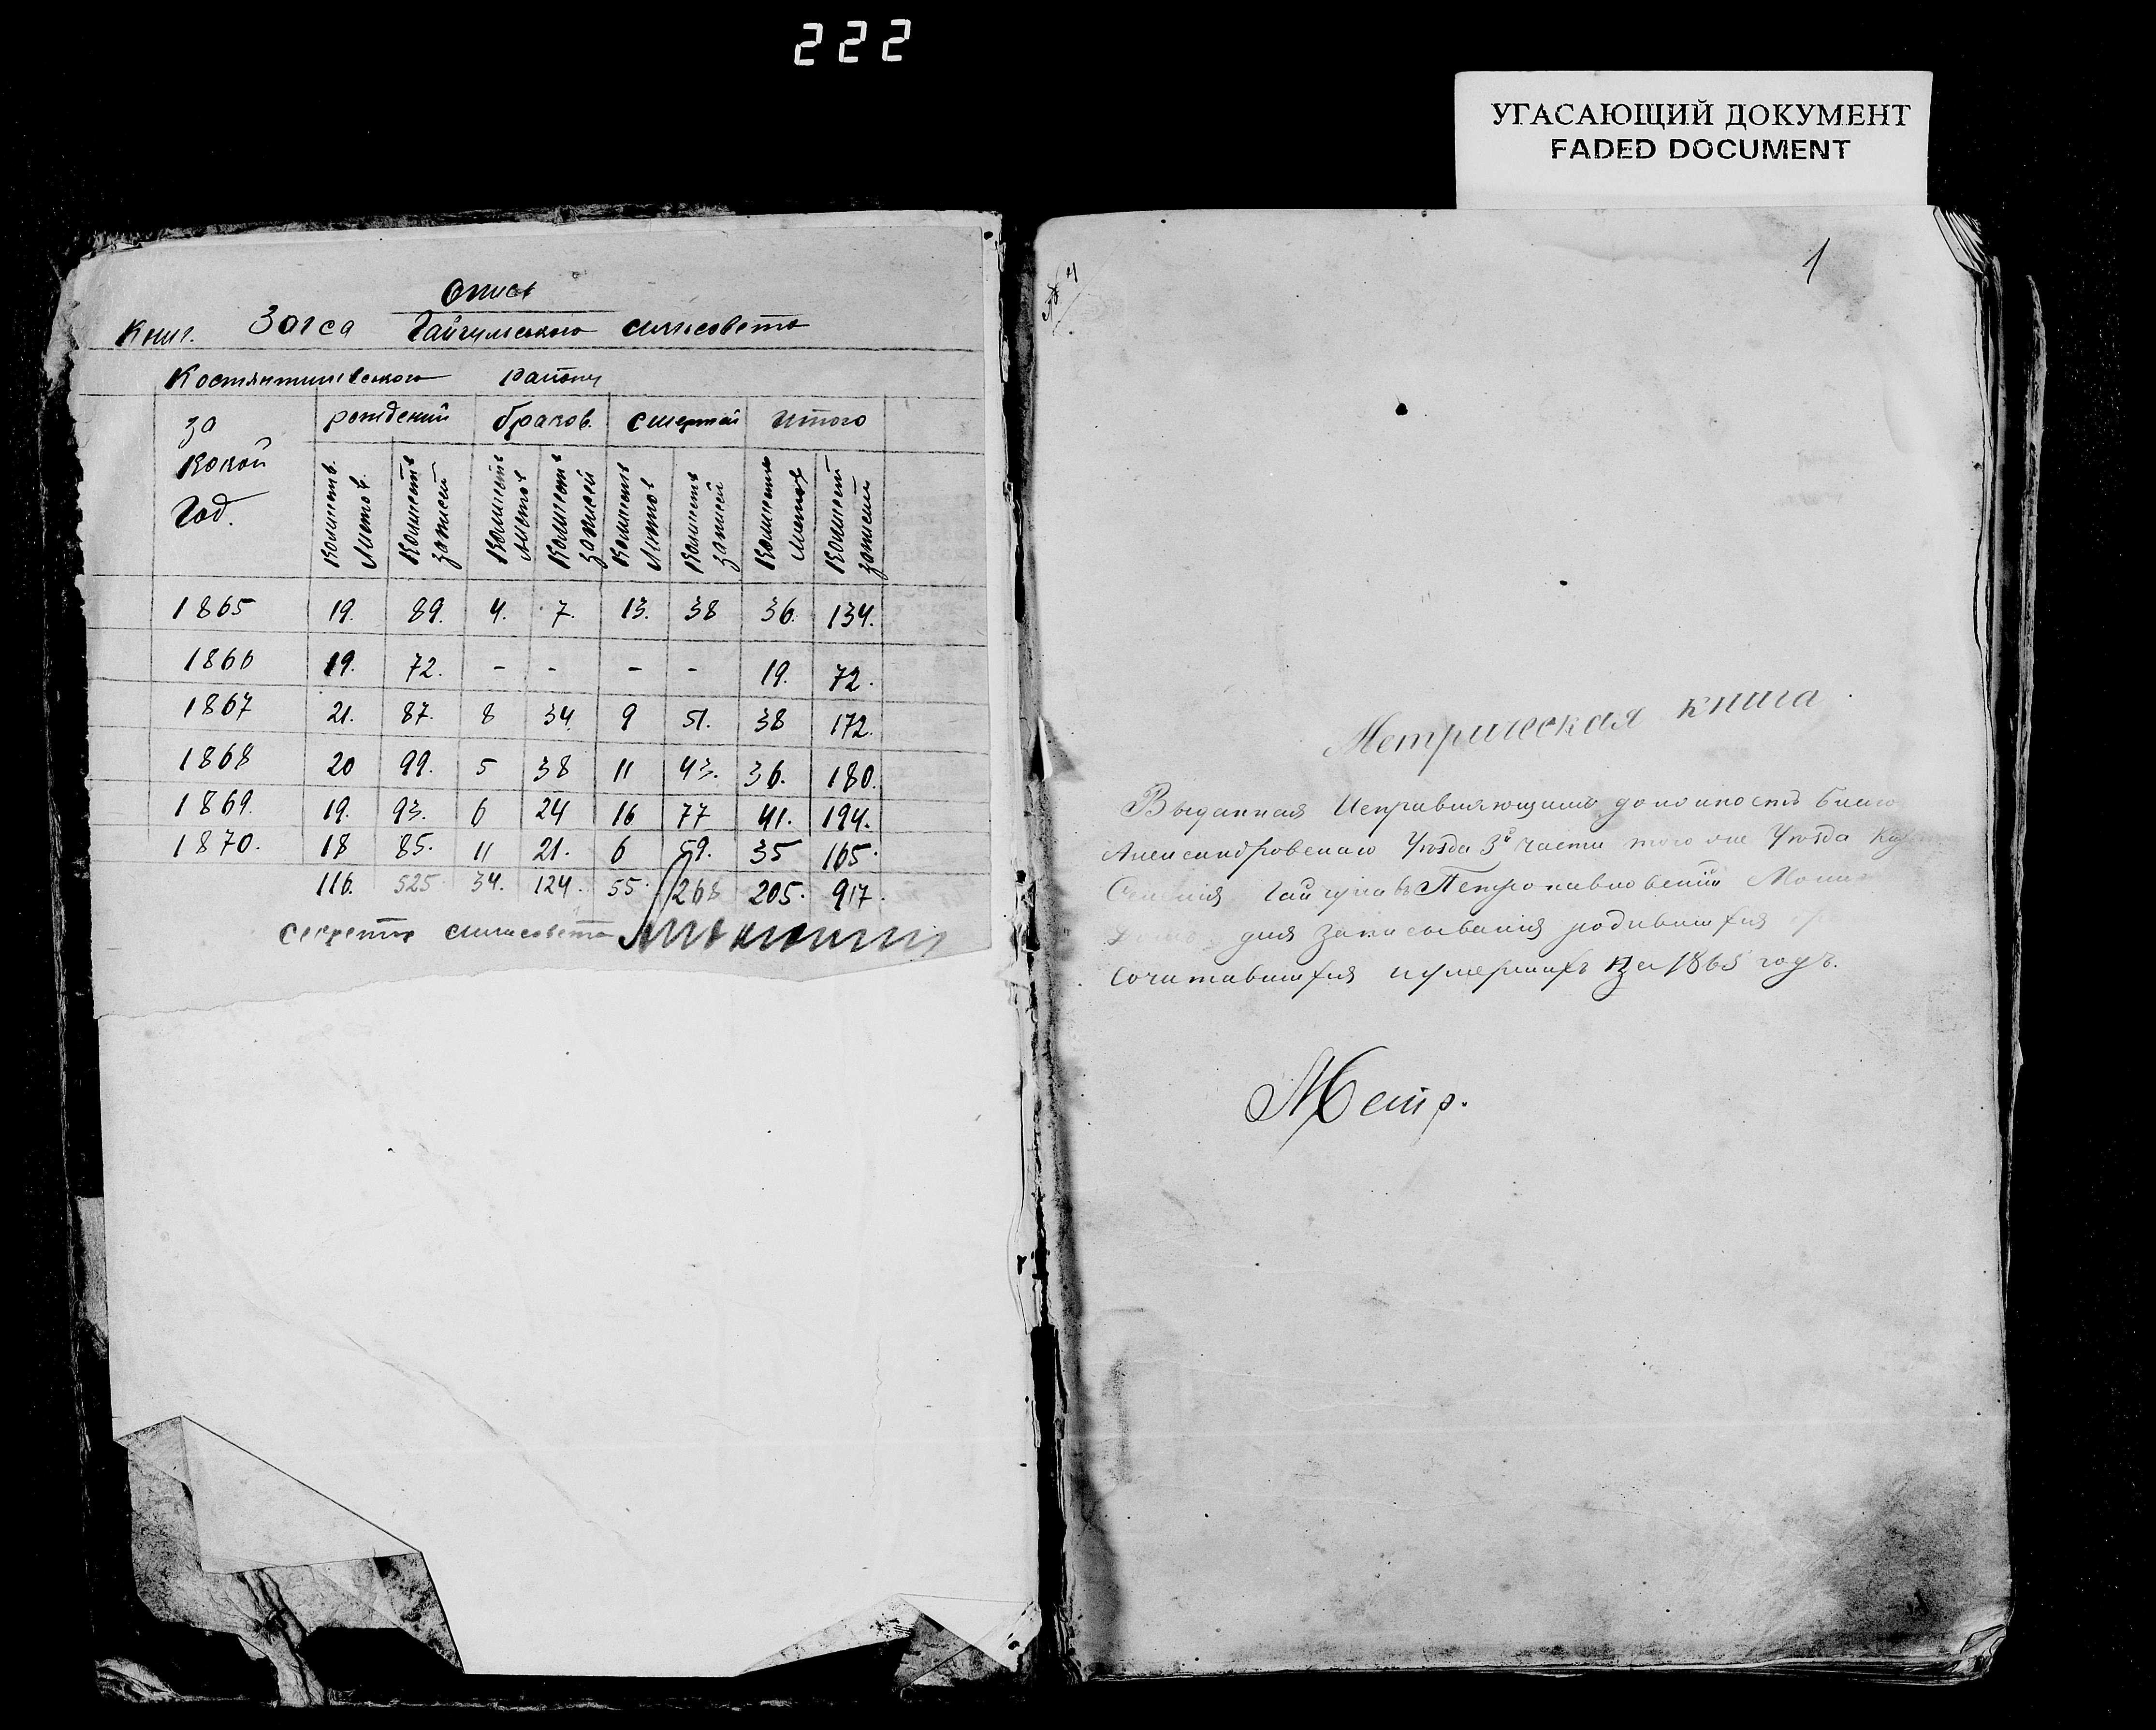 222
УГАСАЮЩИЙ ДОКУМЕНТ
FADED DOCUMENT
Опись
Книг. Загса Гайчульського сильсовета
Костянтиновського району
за какой год. рождений браков. смертей итого
Количеств листов. Количеств записей Количеств листов Количеств записей Количеств листов Количеств записей Количеств листов Количеств записей
1865 19. 89. 4. 7. 13. 38 36. 134.
1866 19. 72. - - - - 19. 72.
1867 21. 87. 8 34. 9 51. 38 172.
1868 20 99. 5 38 11 43. 36. 180.
1869. 19. 93. 6 24 16 77 41. 194.
1870. 18 85. 11 21. 6 59. 35 165.
116. 525 34. 124. 55. 268 205. 917.
секретарь сильсовета
1
Метрическая книга
Выданная Исправляющимъ должность Благо
Александровскаго Уѣзда 3й части того же Уѣзда
Селенія Гайчулъ Петропавловскій
для записыванія родившихся
сочитавшихся и умершихъ на 1865 годъ.
Метр.